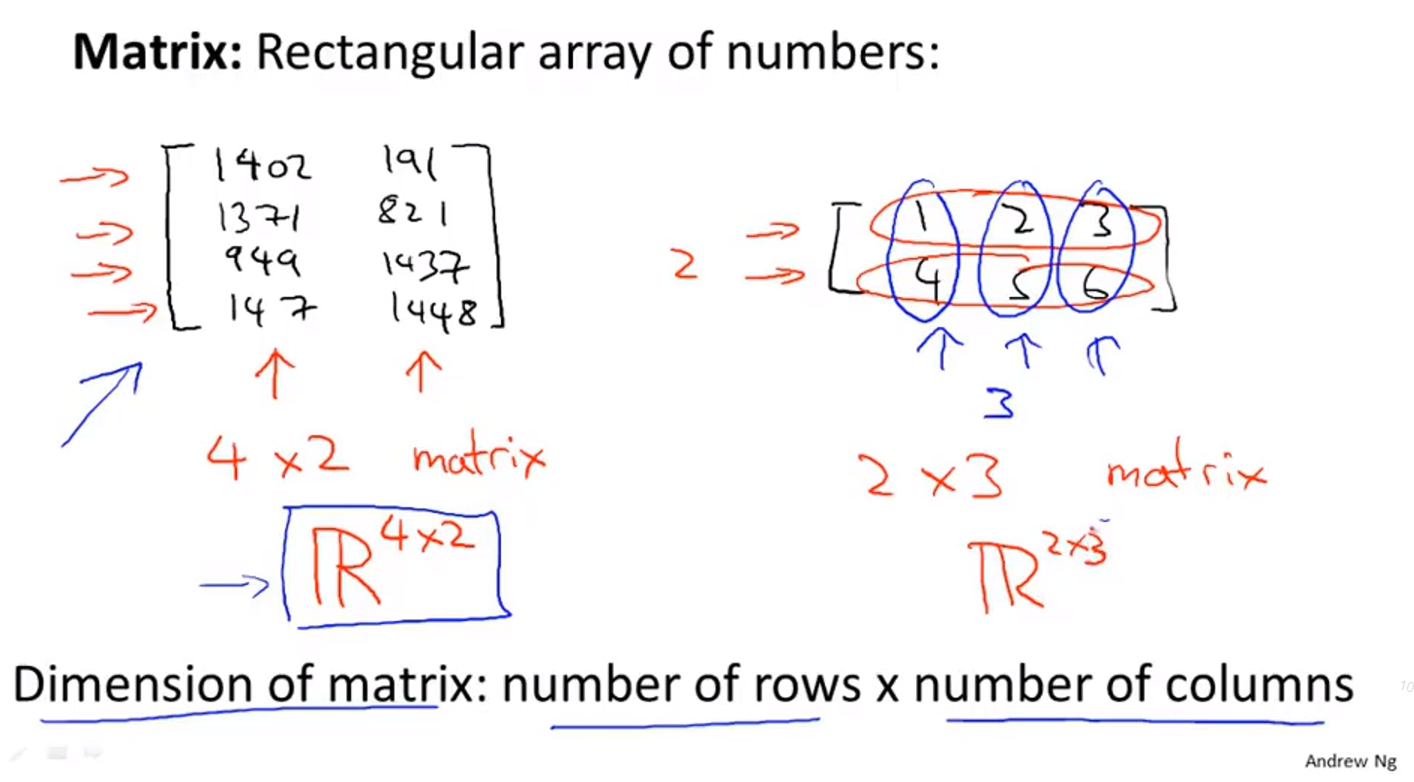 Matrix: Rectangular array of numbers:
1402 191
1371 821
949 1437
147 1448
1 2 3
4 5 6
2
3
4 x 2 matrix
2 x 3 matrix
ℝ^4x2
ℝ^2x3
Dimension of matrix: number of rows x number of columns
10
Andrew Ng